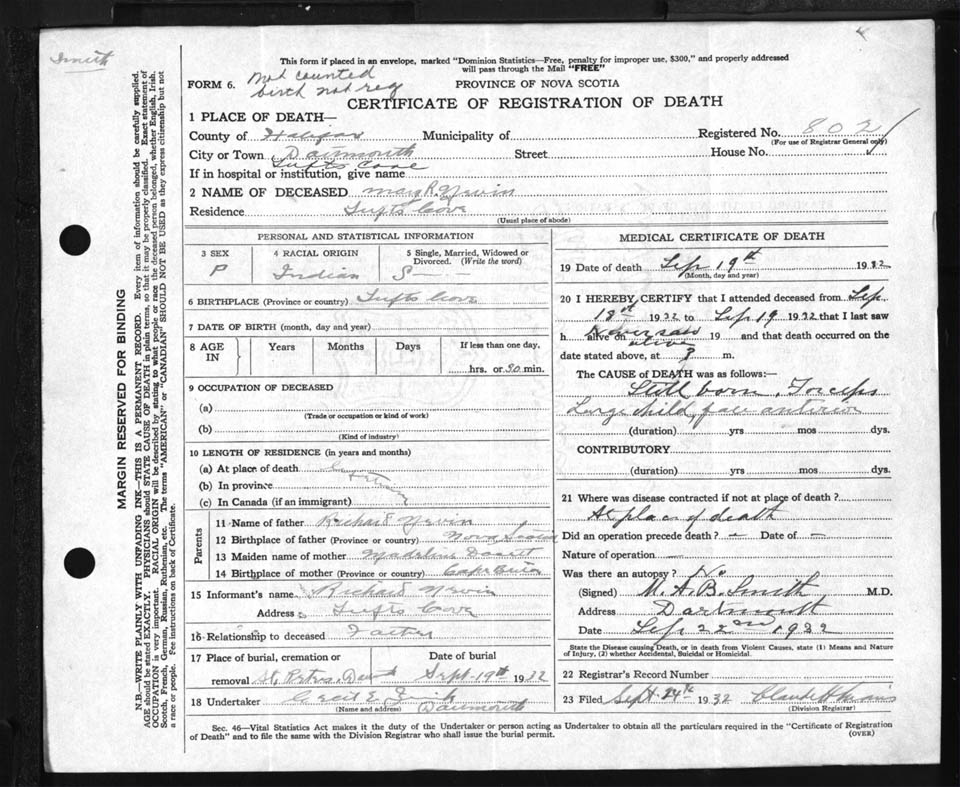 Smith
This form if placed in an envelope, marked "Dominion Statistics—Free, penalty for improper use, $300," and properly addressed
will pass through the Mail "FREE"
FORM 6.
Not counted
birth not reg
PROVINCE OF NOVA SCOTIA
CERTIFICATE OF REGISTRATION OF DEATH
1 PLACE OF DEATH—
County of Halifax Municipality of Registered No. 802
(For use of Registrar General only)
City or Town Dartmouth Street House No.
Tufts Cove
If in hospital or institution, give name
2 NAME OF DECEASED Mary R. Nevin
Residence Tufts Cove
(Usual place of abode)
PERSONAL AND STATISTICAL INFORMATION
3 SEX
4 RACIAL ORIGIN
Indian
5 Single, Married, Widowed or
Divorced. (Write the word)
S
6 BIRTHPLACE (Province or country) Tufts Cove
7 DATE OF BIRTH (month, day and year)
8 AGE
IN
Years Months Days If less than one day,
hrs. or 30 min.
9 OCCUPATION OF DECEASED
(a)
(Trade or occupation or kind of work)
(b)
(Kind of industry)
10 LENGTH OF RESIDENCE (in years and months)
(a) At place of death
(b) In province
(c) In Canada (if an immigrant)
Parents
11 Name of father Richard Nevin
12 Birthplace of father (Province or country) Nova Scotia
13 Maiden name of mother Madeline
14 Birthplace of mother (Province or country) Cape Breton
15 Informant's name Richard Nevin
Address Tufts Cove
16 Relationship to deceased Father
17 Place of burial, cremation or Date of burial
removal St. Peters, Dart Sept 19th 1932
18 Undertaker Cecil E. Smith
(Name and address) Dartmouth
MEDICAL CERTIFICATE OF DEATH
19 Date of death Sep 19th 1932
(Month, day and year)
20 I HEREBY CERTIFY that I attended deceased from Sep
18th 1932 to Sep 19 1932 that I last saw
h alive on Never saw 19 and that death occurred on the
alive
date stated above, at m.
The CAUSE of DEATH was as follows:—
Still born, Forceps
Large child, face anterior
(duration) yrs mos dys.
CONTRIBUTORY
(duration) yrs mos dys.
21 Where was disease contracted if not at place of death?
At place of death
Did an operation precede death? — Date of —
Nature of operation —
Was there an autopsy? No
(Signed) M. A. B. Smith M.D.
Address Dartmouth
Date Sep 22nd 1932
State the Disease causing Death, or in death from Violent Causes, state (1) Means and Nature
of Injury, (2) whether Accidental, Suicidal or Homicidal.
22 Registrar's Record Number
23 Filed Sept 24th 1932
(Division Registrar)
Sec. 46—Vital Statistics Act makes it the duty of the Undertaker or person acting as Undertaker to obtain all the particulars required in the "Certificate of Registration
of Death" and to file the same with the Division Registrar who shall issue the burial permit.
(OVER)
MARGIN RESERVED FOR BINDING
N.B.—WRITE PLAINLY WITH UNFADING INK—THIS IS A PERMANENT RECORD. Every item of information should be carefully supplied.
AGE should be stated EXACTLY. PHYSICIANS should STATE CAUSE OF DEATH in plain terms, so that it may be properly classified. Exact statement of
OCCUPATION is very important. RACIAL ORIGIN will be described by stating to what people or race the deceased person belonged, whether English, Irish,
Scotch, French, German, Russian, Ruthenian, etc. The terms "AMERICAN" or "CANADIAN" SHOULD NOT BE USED as they express citizenship but not
a race or people. See instructions on back of Certificate.